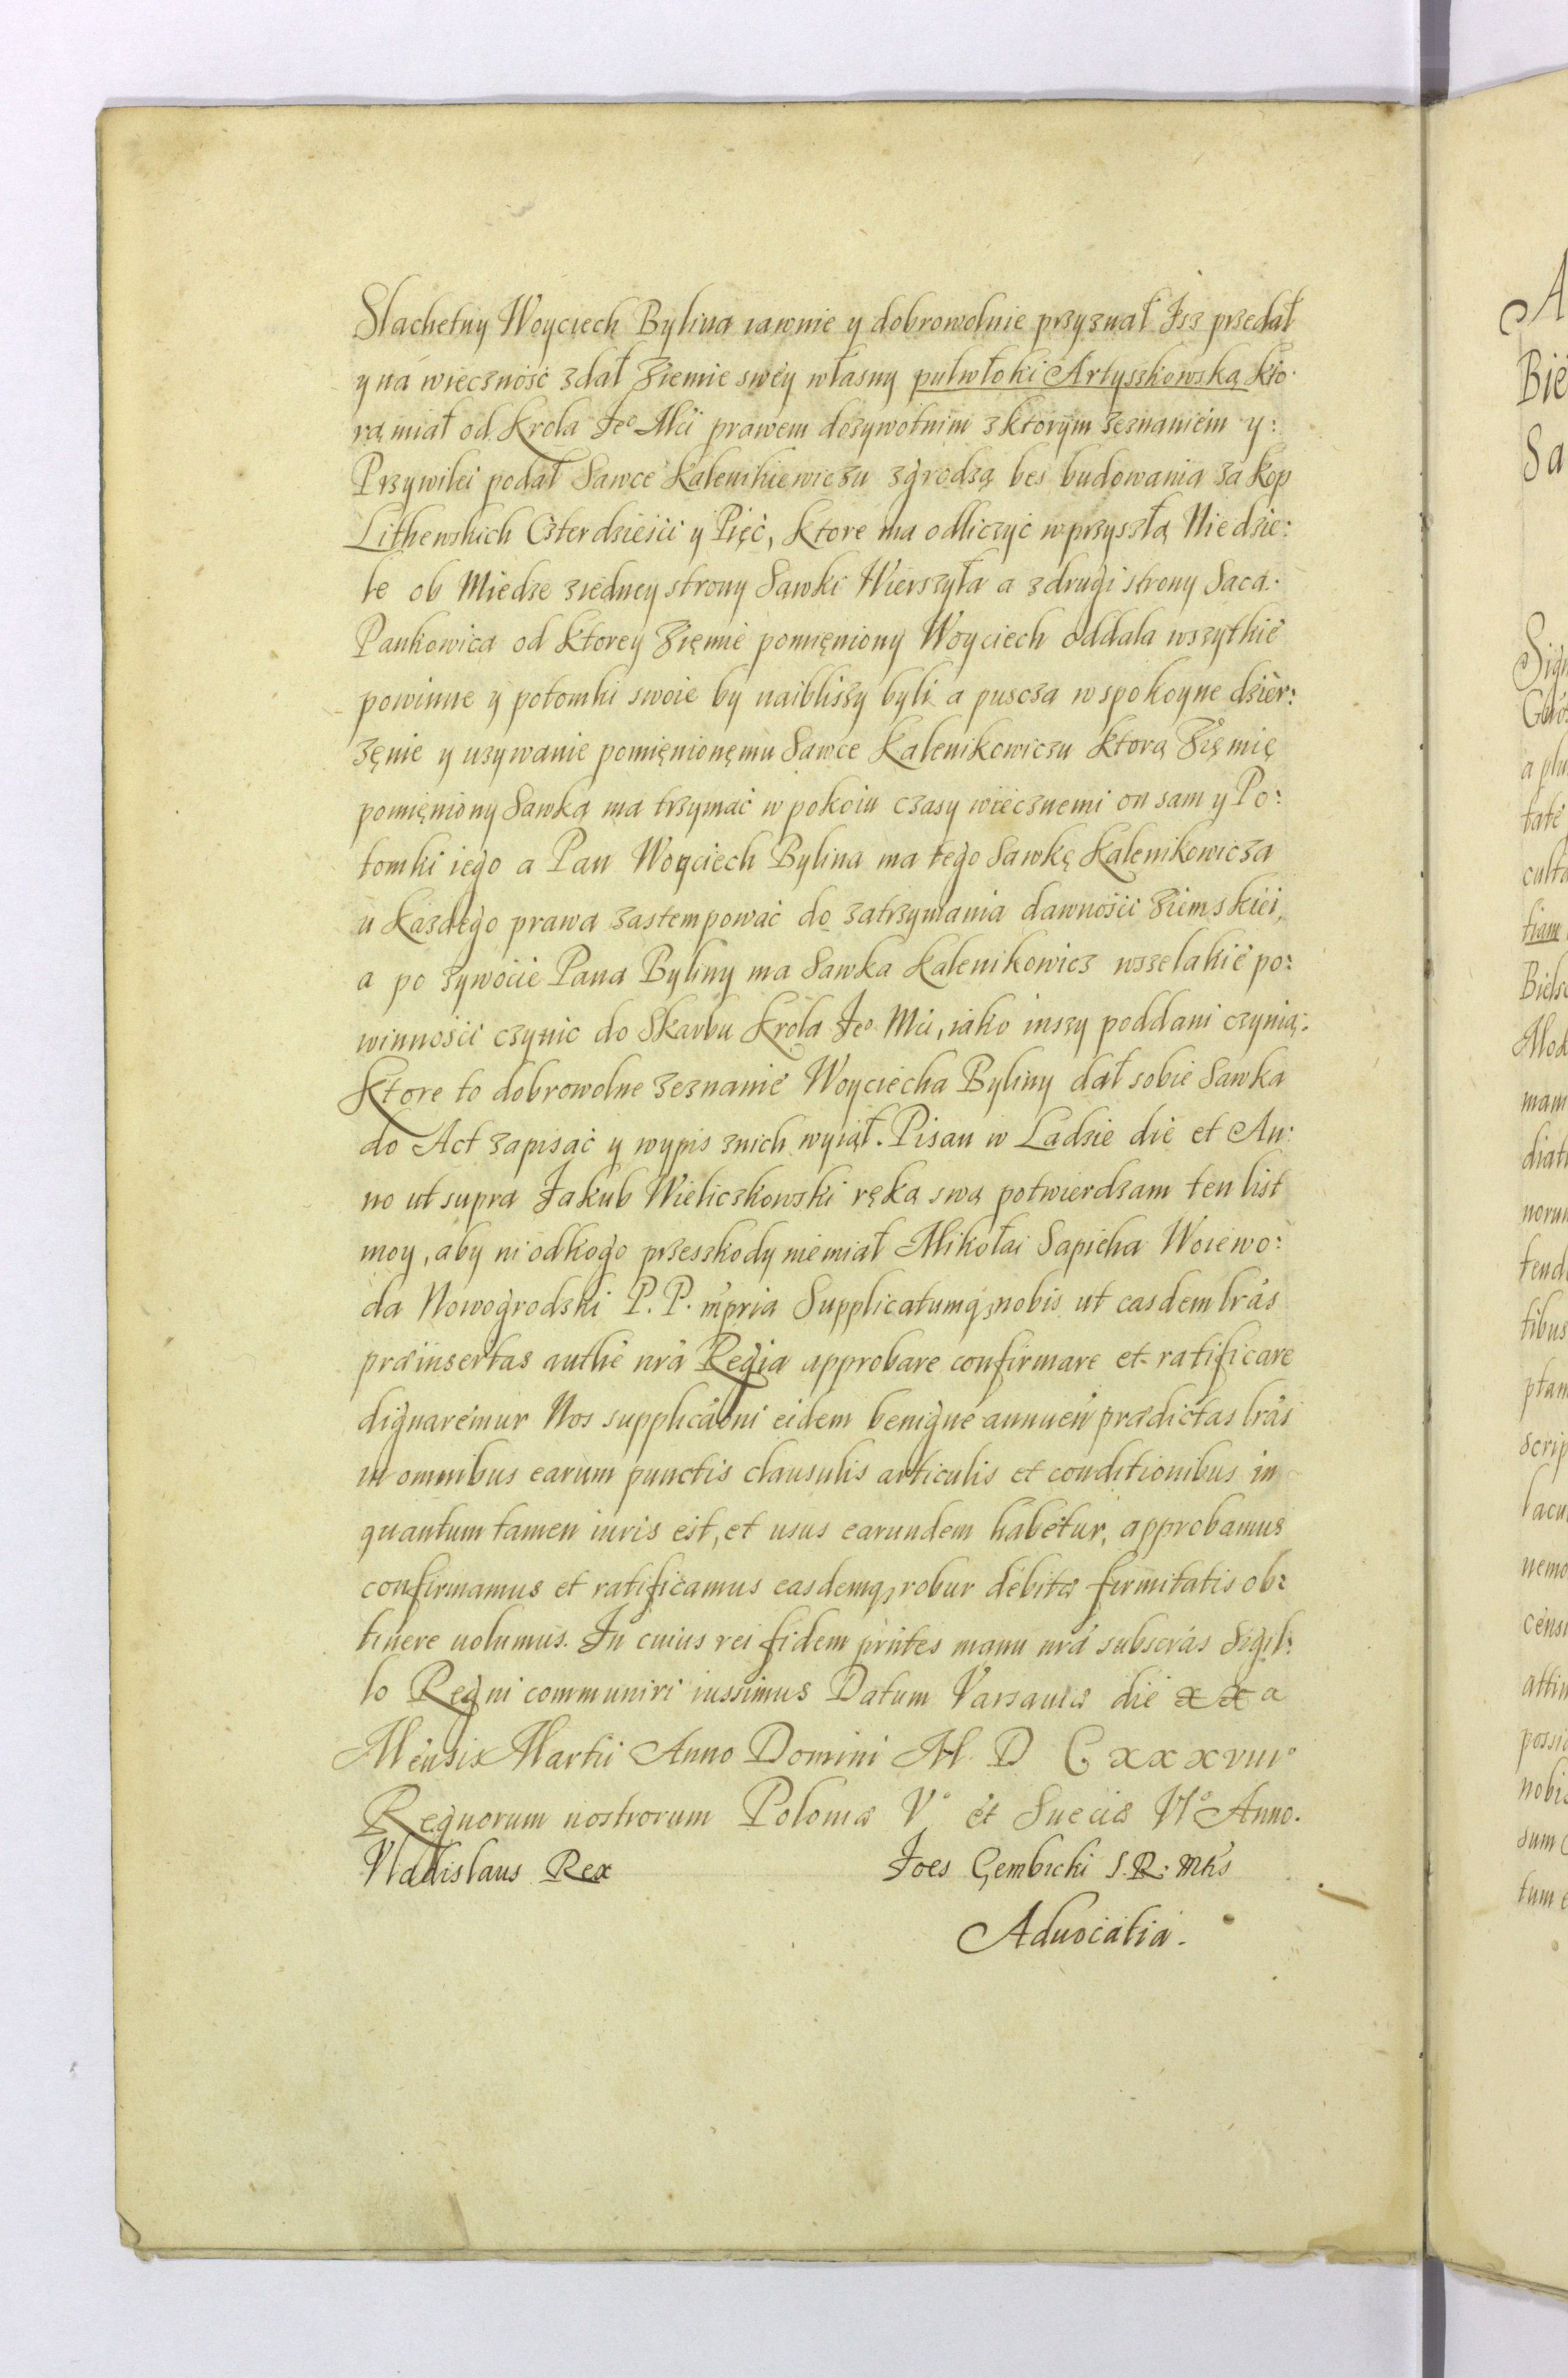 Slachetny Woyciech Bylina iawnie y dobrowolnie przyznał Isz przedał
y na wieczność zdał Ziemie swéy własny pułwłoki Artyszkowską kto-
rą miał od Krola Jeº Mći prawem dozywotnim z ktorym zeznaniem y:
Przywilei podał Sawce Kalenikiewiczu zgrodzą bes budowania za kop
Lithewskich Czterdzieści y Pięć, ktore ma odliczyć w przyszłą Niedzie:
le ob Miedze ziedney strony Sawki Wierszyła a zdrugi strony Saca.
Pankowica od ktorey Zięmie pomięniony Woyciech oddala wszytkie
powinne y potomki swoie by naibliszy byli a puscza w spokoyne dzier:
zęnie y uzywanie pomięnionęmu Sawce Kalenikowiczu ktorą Zięmię
pomięniony Sawka ma trzymać w pokoiu czasy wiecznemi on sam y Po:
tomki iego a Pan Woyciech Bylina ma tego Sawkę Kalenikowicza
u Kazdego prawa zastempować do zatrzymania dawności Ziemskiei,
a po zywocie Pana Byliny ma Sawka Kalenikowicz wszelakie po:
winności czynic do Skarbu Krola Jeº Mći, iako inszy poddani czynią:
Ktore to dobrowolne zeznanie Woyciecha Byliny dał sobie Sawka
do Act zapisać y wypis znich wyiął. Pisan w Ladzie die et An:
no ut supra Jakub Wieliczkowski ręką swą potwierdzam ten list
moy, aby ni odkogo przeszkody niemiał Mikołai Sapieha Woiewo:
da Nowogrodzki P. P. mpria Supplicatumq; nobis ut easdem lrás
præinsertas authe nrá Regia approbare confirmare et ratificare
dignaremur Nos supplicaoni eidem benigne annuen prædictas lrás
in omnibus earum punctis clausulis articulis et conditionibus in
quantum tamen iuris est, et usus earundem habetur, approbamus
confirmamus et ratificamus easdemq; robur debitæ firmitatis ob:
tinere uolumus. In cuius rei fidem prntes manu nrá subscras Sigil:
lo Regni communiri iussimus Datum Varsauiæ die xx a
Mensis Martii Anno Domini M. D C xxxviiiº
Regnorum nostrorum Poloniæ Vº et Sueciæ VIº Anno.
Vladislaus Rex Joes Gembicki S. R: Mtis
Aduocatia.